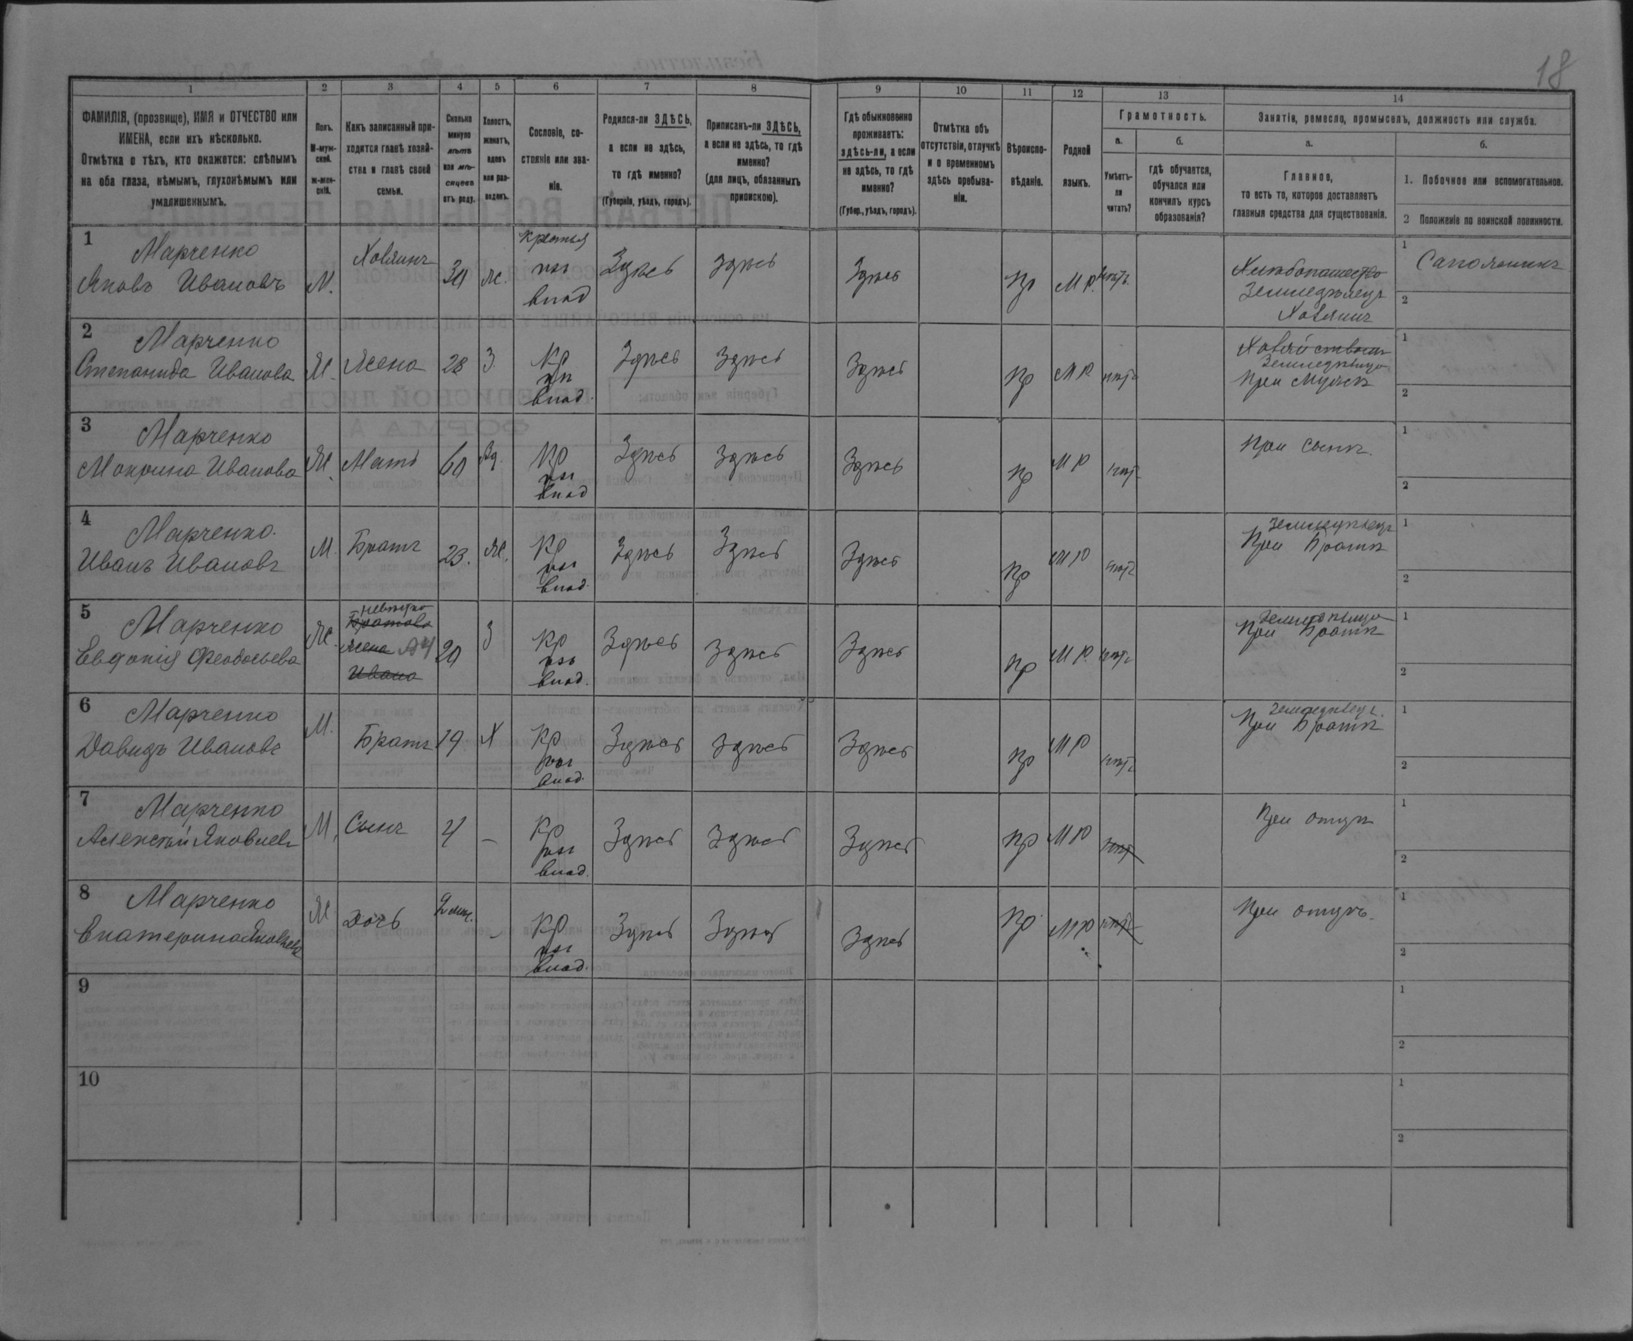 18
1 2 3 4 5 6 7 8 9 10 11 12 13 14
ФАМИЛІЯ, (прозвище), ИМЯ и ОТЧЕСТВО или
ИМЕНА, если ихъ нѣсколько.
Отмѣтка о тѣхъ, кто окажется: слѣпымъ
на оба глаза, нѣмымъ, глухонѣмымъ или
умалишеннымъ.
Полъ.
М-муж-
ской.
ж-жен-
скій.
Какъ записанный при-
ходится главѣ хозяй-
ства и главѣ своей
семьи.
Сколько
минуло
лѣтъ
или мѣ-
сяцевъ
отъ роду.
Холостъ,
женатъ,
вдовъ
или раз-
веденъ.
Сословіе, со-
стояніе или зва-
ніе.
Родился-ли ЗДѢСЬ,
а если не здѣсь,
то гдѣ именно?
(Губернія, уѣздъ, городъ).
Приписанъ-ли ЗДѢСЬ,
а если не здѣсь, то гдѣ
именно?
(для лицъ, обязанныхъ
припискою).
Гдѣ обыкновенно
проживаетъ:
здѣсь-ли, а если
не здѣсь, то гдѣ
именно?
(Губер., уѣздъ, городъ).
Отмѣтка объ
отсутствіи, отлучкѣ
и о временномъ
здѣсь пребыва-
ніи.
Вѣроиспо-
вѣданіе.
Родной
языкъ.
Грамотность.
а.
Умѣетъ-
ли
читать?
б.
гдѣ обучается,
обучался или
кончилъ курсъ
образованія?
Занятіе, ремесло, промыселъ, должность или служба.
а.
Главное,
то есть то, которое доставляетъ
главныя средства для существованія.
б.
1. Побочное или вспомогательное.
2 Положеніе по воинской повинности.
1
Марченко
Яковъ Ивановъ
М.
Хозяинъ
Ж.
влад
Здѣсь Здѣсь Здѣсь
Пр М Р
Хлѣбопашество
Земледѣлецъ
Хозяинъ
1 Сапожникъ
2
2
Марченко
Степанида Ивановa
Ж.
Жена
28
З
Кр
влад.
Здѣсь Здѣсь Здѣсь
Пр М Р
Земледѣлица
При мужѣ
1
2
3
Марченко
Мокрина Ивановa
Ж.
Мать
60
Вд.
Кр
влад
Здѣсь Здѣсь Здѣсь
Пр М Р
При сынѣ
1
2
4
Марченко.
Иванъ Ивановъ
М.
Братъ
23.
Ж.
Кр
влад.
Здѣсь Здѣсь Здѣсь
Пр М Р
Земледѣлецъ
При братѣ
1
2
5
Марченко
Евдокія Феодосьева
Ж.
невѣстка
Братова
жена
Ивана
20
З
Кр
влад.
Здѣсь Здѣсь Здѣсь
Пр М Р
Земледѣлица
При братѣ
1
2
6
Марченко
Давидъ Ивановъ
М.
Братъ
19
Х
Кр
влад.
Здѣсь Здѣсь Здѣсь
Пр М Р
Земледѣлецъ.
При братѣ
1
2
7
Марченко
Алексѣй Яковлевъ
М.
Сынъ
4
–
Кр
влад.
Здѣсь Здѣсь Здѣсь
Пр М Р
При отцѣ
1
2
8
Марченко
Екатерина Яковлева
Ж
дочь
2 мѣс.
–
Кр
влад.
Здѣсь Здѣсь Здѣсь
Пр М Р
При отцѣ.
1
2
9
1
2
10
1
2